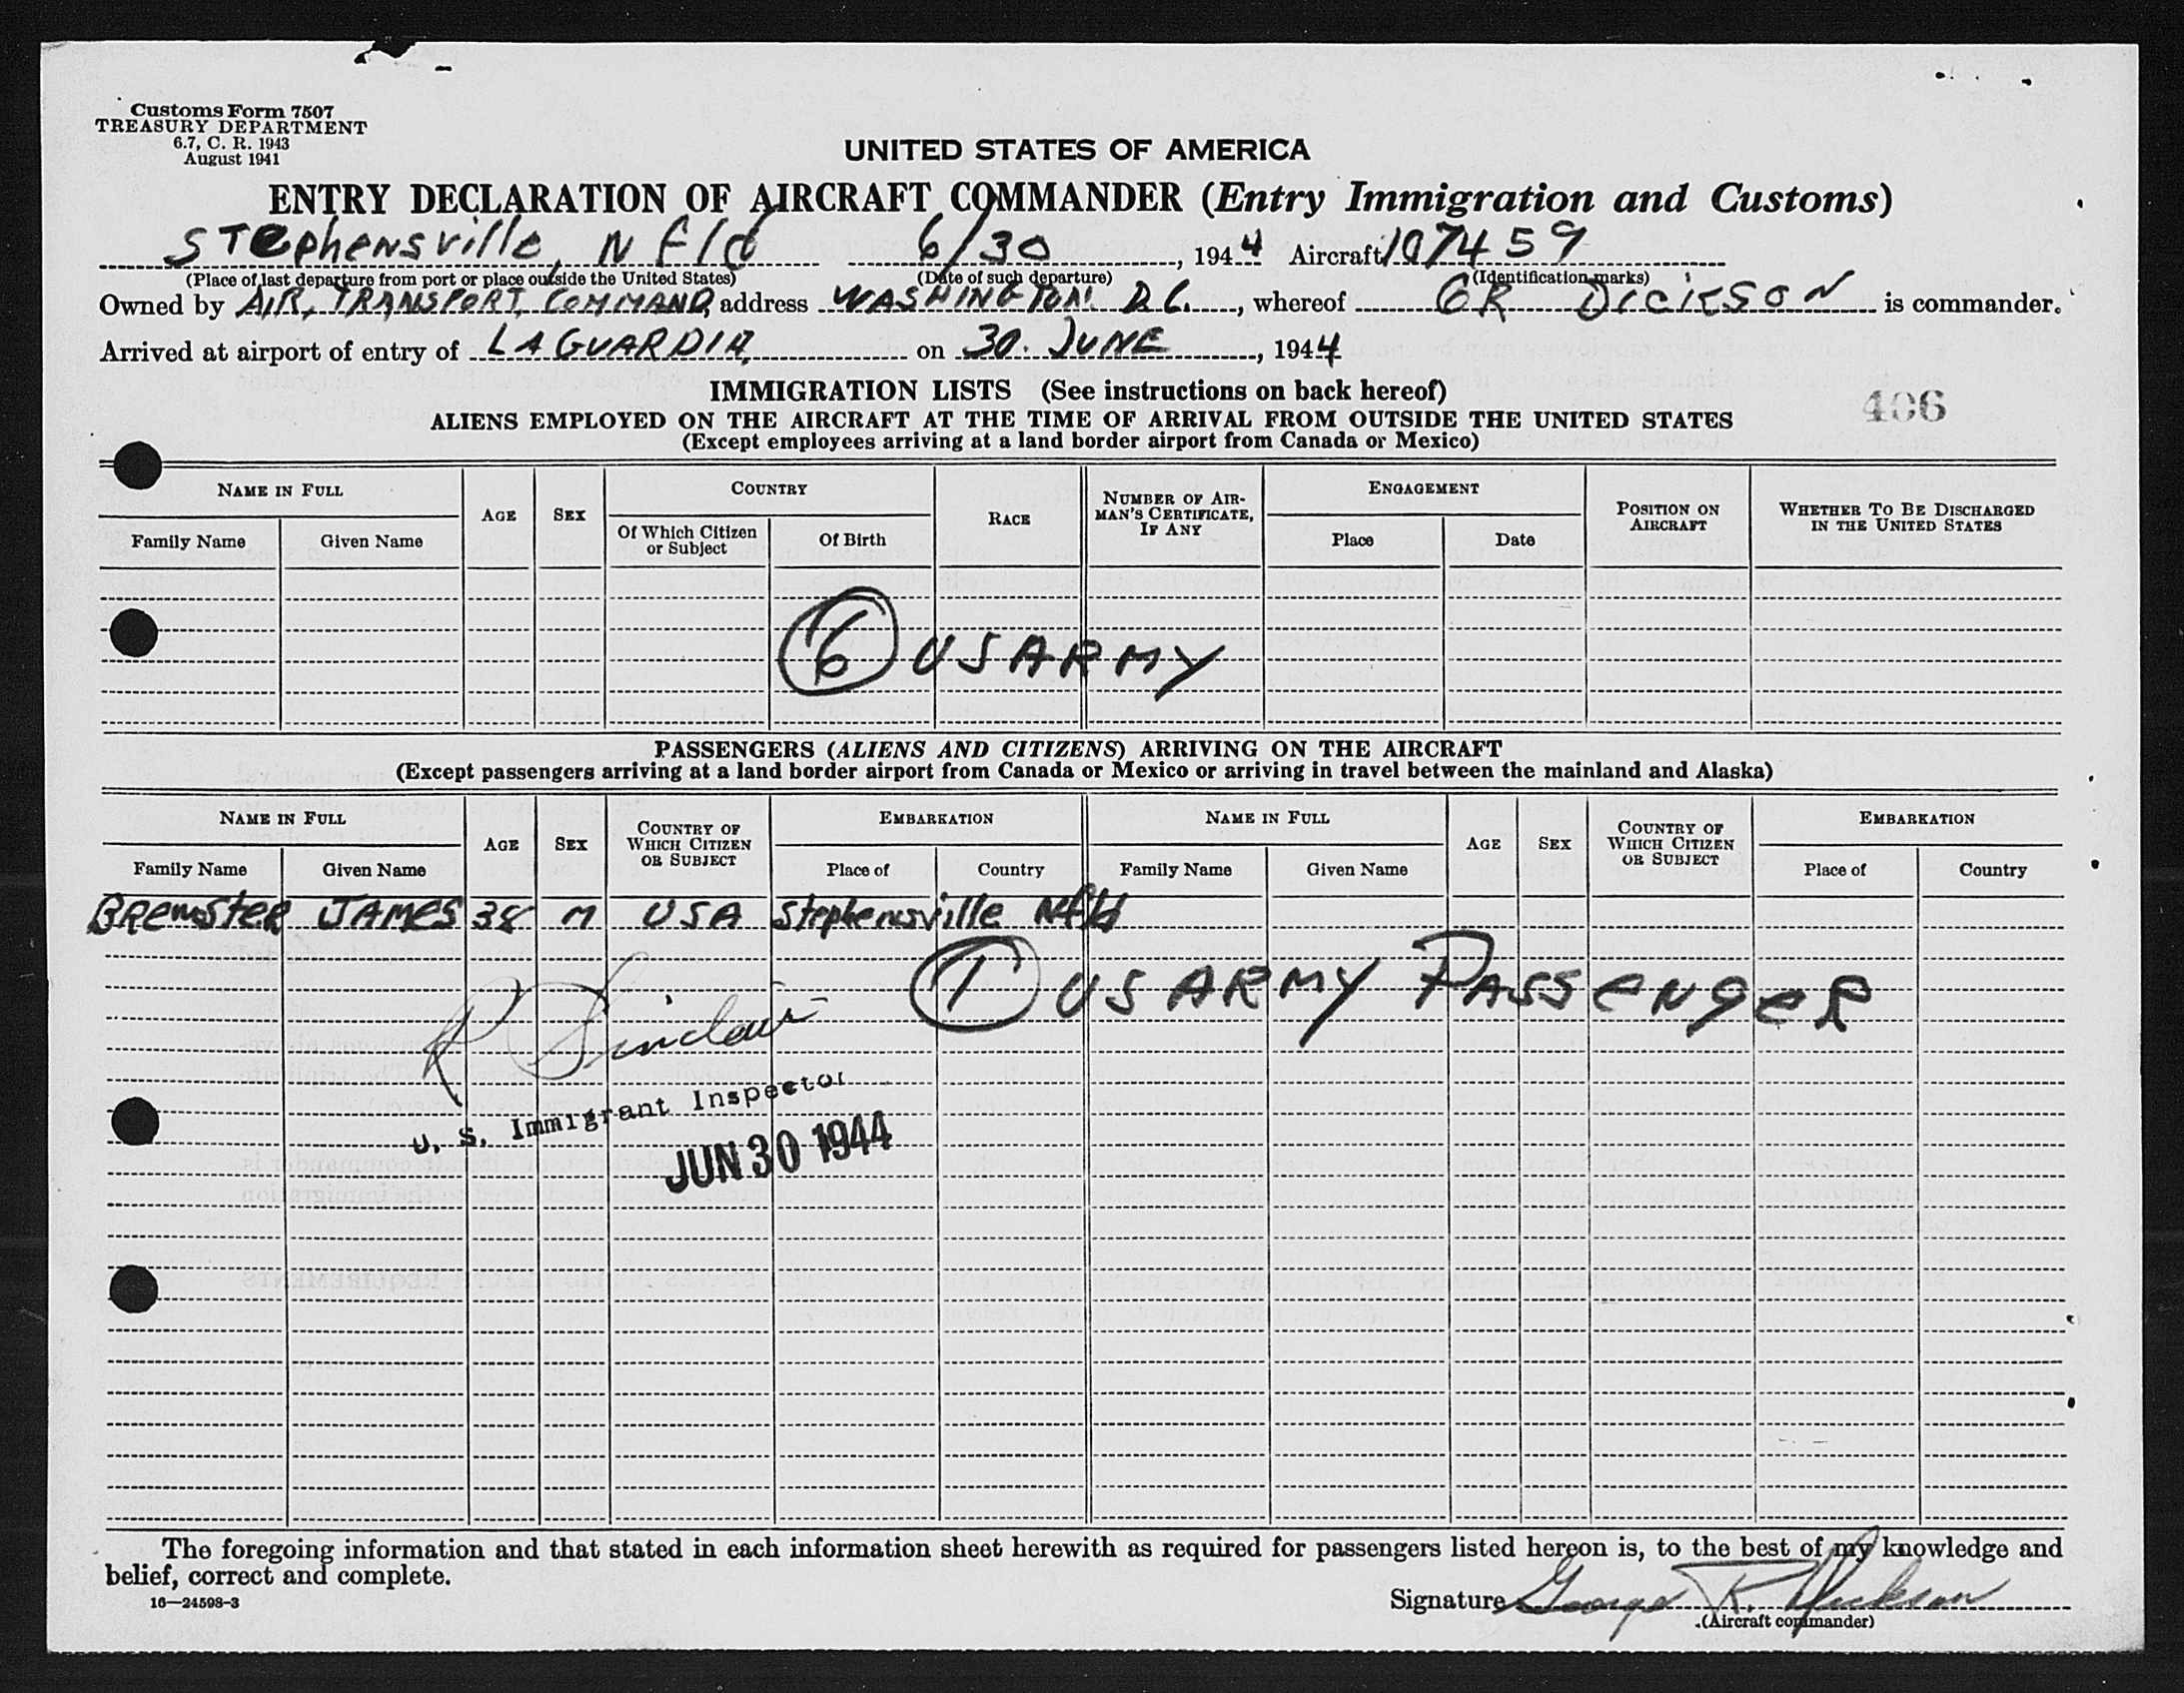 Customs Form 7507
TREASURY DEPARTMENT
6.7, C. R. 1943
August 1941
UNITED STATES OF AMERICA
ENTRY DECLARATION OF AIRCRAFT COMMANDER (Entry Immigration and Customs)
STephensville, Nfld 6/30, 1944 Aircraft 107459
(Place of last departure from port or place outside the United States) (Date of such departure) (Identification marks)
Owned by AIR TRANSPORT COMMAND, address WASHINGTON D.C., whereof GR DICKSON is commander.
Arrived at airport of entry of LA GUARDIA, on 30 JUNE, 1944
IMMIGRATION LISTS (See instructions on back hereof)
406
ALIENS EMPLOYED ON THE AIRCRAFT AT THE TIME OF ARRIVAL FROM OUTSIDE THE UNITED STATES
(Except employees arriving at a land border airport from Canada or Mexico)
NAME IN FULL AGE SEX COUNTRY RACE NUMBER OF AIRMAN'S CERTIFICATE, IF ANY ENGAGEMENT POSITION ON AIRCRAFT WHETHER TO BE DISCHARGED IN THE UNITED STATES
Family Name Given Name Of Which Citizen or Subject Of Birth Place Date
6 US ARMY
PASSENGERS (ALIENS AND CITIZENS) ARRIVING ON THE AIRCRAFT
(Except passengers arriving at a land border airport from Canada or Mexico or arriving in travel between the mainland and Alaska)
NAME IN FULL AGE SEX COUNTRY OF WHICH CITIZEN OR SUBJECT EMBARKATION NAME IN FULL AGE SEX COUNTRY OF WHICH CITIZEN OR SUBJECT EMBARKATION
Family Name Given Name Place of Country Family Name Given Name Place of Country
BRewsteR JAMES 38 M USA Stephensville Nfld
1 US ARMY PASSENgeR
R Sinclair
U. S. Immigrant Inspector
JUN 30 1944
The foregoing information and that stated in each information sheet herewith as required for passengers listed hereon is, to the best of my knowledge and
belief, correct and complete.
16—24598-3
Signature George R. Dickson
(Aircraft commander)